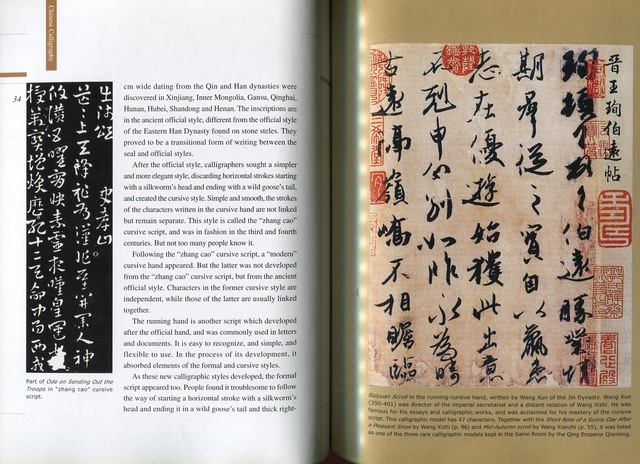 Chinese Calligraphy
34
出師頌
史孝山
Part of Ode on Sending Out the
Troops in "zhang cao" cursive
script.
cm wide dating from the Qin and Han dynasties were
discovered in Xinjiang, Inner Mongolia, Gansu, Qinghai,
Hunan, Hubei, Shandong and Henan. The inscriptions are
in the ancient official style, different from the official style
of the Eastern Han Dynasty found on stone steles. They
proved to be a transitional form of writing between the
seal and official styles.
After the official style, calligraphers sought a simpler
and more elegant style, discarding horizontal strokes starting
with a silkworm's head and ending with a wild goose's tail,
and created the cursive style. Simple and smooth, the strokes
of the characters written in the cursive hand are not linked
but remain separate. This style is called the "zhang cao"
cursive script, and was in fashion in the third and fourth
centuries. But not too many people know it.
Following the "zhang cao" cursive script, a "modern"
cursive hand appeared. But the latter was not developed
from the "zhang cao" cursive script, but from the ancient
official style. Characters in the former cursive style are
independent, while those of the latter are usually linked
together.
The running hand is another script which developed
after the official hand, and was commonly used in letters
and documents. It is easy to recognize, and simple, and
flexible to use. In the process of its development, it
absorbed elements of the formal and cursive styles.
As these new calligraphic styles developed, the formal
script appeared too. People found it troublesome to follow
the way of starting a horizontal stroke with a silkworm's
head and ending it in a wild goose's tail and thick right-
晋王珣伯遠帖
珣頓首頓首伯遠勝業情
期群從之寶自以羸患
志在優遊始獲此出意
不剋申分別如昨永為疇
古遠隔嶺嶠不相瞻臨
Baiyuan Scroll in the running-cursive hand, written by Wang Xun of the Jin Dynasty. Wang Xun
(350-401) was director of the imperial secretariat and a distant relation of Wang Xizhi. He was
famous for his essays and calligraphic works, and was acclaimed for his mastery of the cursive
script. This calligraphic model has 47 characters. Together with the Short Note of a Sunny Day After
a Pleasant Snow by Wang Xizhi (p. 96) and Mid-Autumn scroll by Wang Xianzhi (p. 55), it was listed
as one of the three rare calligraphic models kept in the Sanxi Room by the Qing Emperor Qianlong.